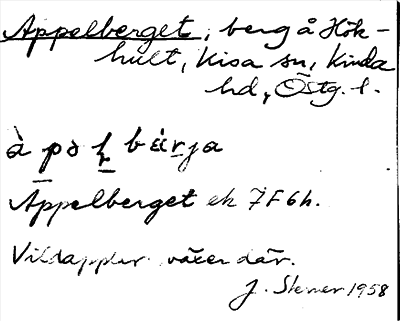 Appelberget, berg å Hök-
hult, Kisa sn, Kinda
hd, Östg. l.
Appelberget ek 7F6h.
Vildapplar växer där.
J. Stener 1958